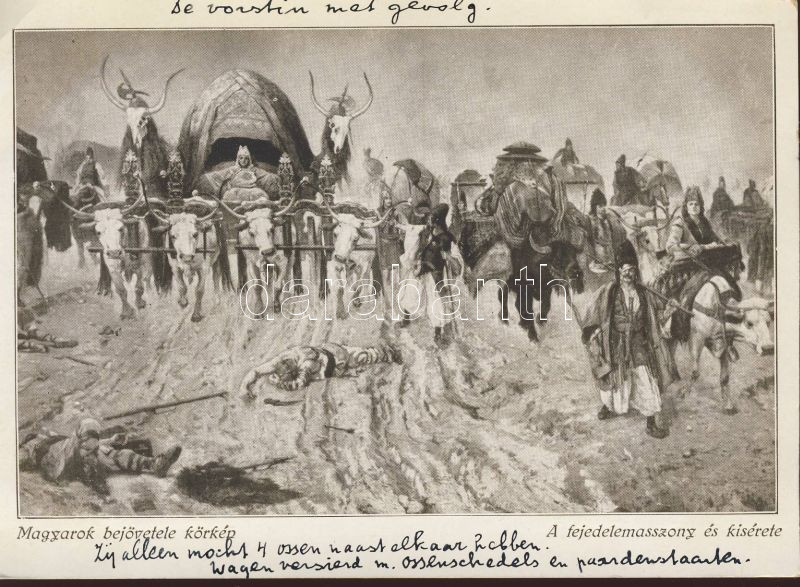 De vorstin met gevolg.
darabanth
Magyarok bejövetele körkép
A fejedelemasszony és kisérete
Zij alleen mocht 4 ossen naast elkaar hebben.
Wagen versierd m. ossenschedels en paardenstaarten.